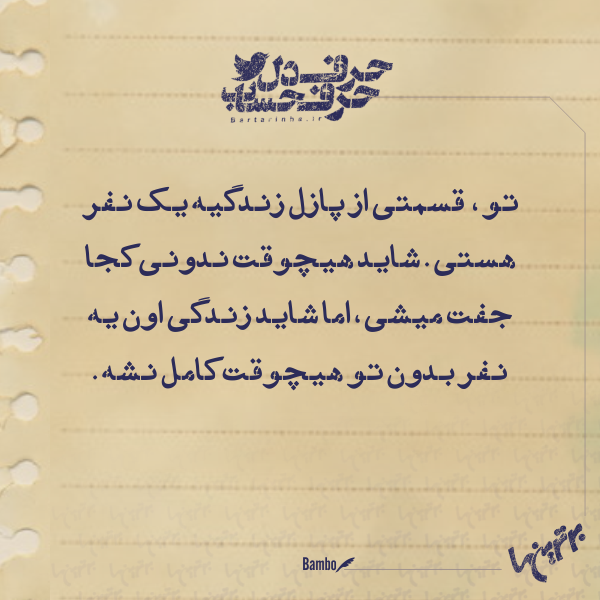 حرف دل
حرف حساب
Bartarinha.ir
تو ، قسمتی از پازل زندگیه یک نفر
هستی. شاید هیچوقت ندونی کجا
جفت میشی، اما شاید زندگی اون یه
نفر بدون تو هیچوقت کامل نشه.
Bambo
برترین ها